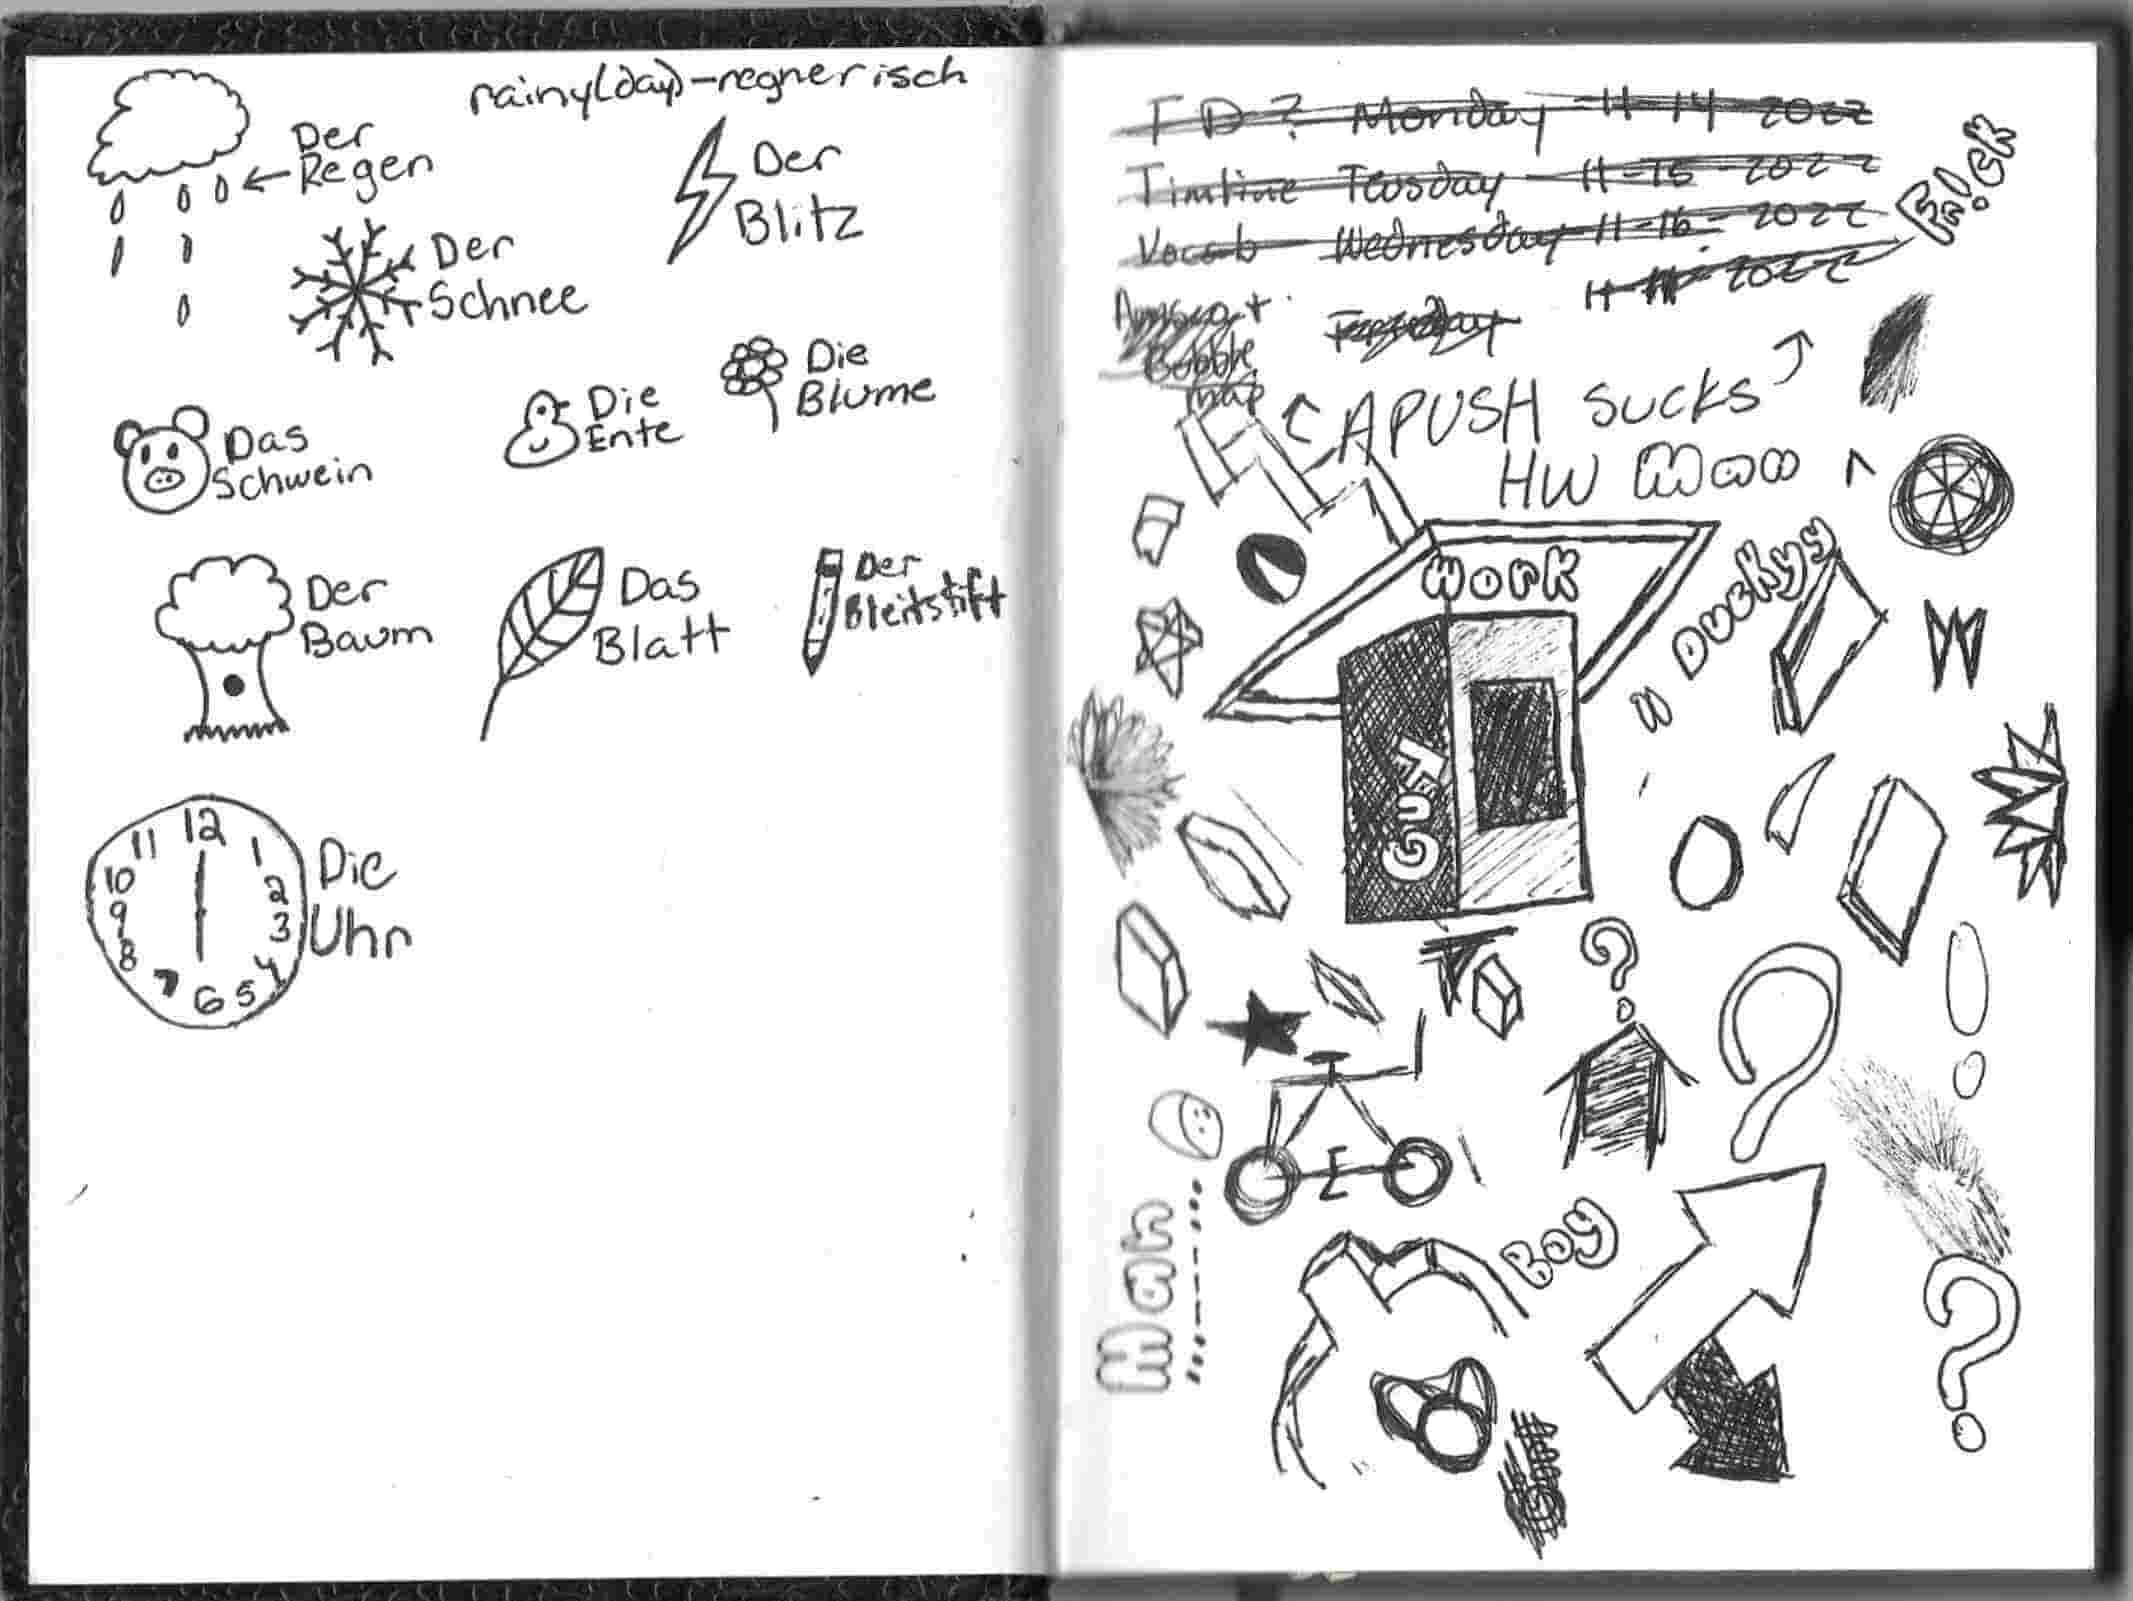 rainy(day)-regnerisch
Der
Regen
Der
Blitz
Der
Schnee
Das
Schwein
Die
Ente
Die
Blume
Der
Baum
Das
Blatt
Der
Bleitstift
12
11 1
10 2
9 3
8 4
7 6 5
Die
Uhr
I D ? Monday 11-14 2022
Timline Teusday 11-15-2022
Vocab Wednesday 11-16-2022
11- 2022
Amsco +
Bubble
map
APUSH sucks
HW
work
Duckyy
Guy
E
Boy
Man